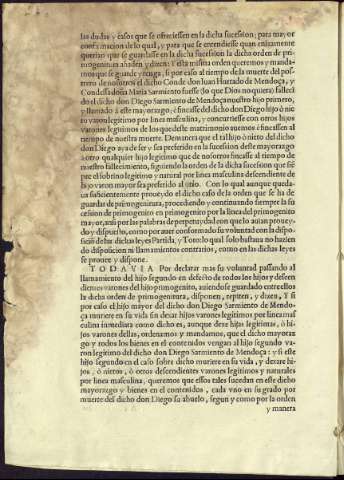 las dudas y casos que se ofreciessen en la dicha sucession; para mayor
confirmacion de lo qual, y para que se entendiesse quan enixamente
querian que se guardasse en la dicha sucession la dicha orden de pri-
mogenitura añaden y dizen: Y esta misma orden queremos y manda-
mos que se guarde y tenga, si por caso al tiempo de la muerte del pos-
trero de nosotros el dicho Conde don Iuan Hurtado de Mendoça, y
Condessa doña Maria Sarmiento fuesse (lo que Dios no quiera) falleci
do el dicho don Diego Sarmiento de Mendoça nuestro hijo primero,
y llamado à este mayorazgo, è fincasse del dicho don Diego hijo ò nie
to varon legitimo por linea masculina, y concurriesse con otros hijos
varones legitimos de los que deste matrimonio auemos è fincassen al
tiempo de nuestra muerte. De manera que el tal hijo ò nieto del dicho
don Diego aya de ser y sea preferido en la sucession deste mayorazgo
à otro qualquier hijo legitimo que de nosotros fincasse al tiempo de
nuestro fallecimiento, siguiendo la orden de la dicha sucession que siẽ
pre el sobrino legitimo y natural por linea masculina descendiente de
hijo varon mayor sea preferido al tio. Con lo qual aunque queda-
ua suficientemente proueydo el dicho caso de la orden que se ha de
guardar de primogenitura, procediendo y continuando siempre la su
cesion de primogenito en primogenito por la linea del primogenito
mayor, assi por las palabras de perpetuydad con que lo auian proue-
ydo y dispuesto, como por auer conformado su voluntad con la dispo-
sicion de las dichas leyes Partida, y Toro: lo qual solo bastaua no hazien
do disposicion ni llamamientos contrarios, como en las dichas leyes
se prouee y dispone.
TODAVIA Por declarar mas su voluntad passando al
llamamiento del hijo segundo en defecto de todos los hijos y descen
dientes varones del hijo primogenito, auiendo se guardado entre ellos
la dicha orden de primogenitura, disponen, repiten, y dizen, Y si
por caso el hijo mayor del dicho don Diego Sarmiento de Mendo-
ça muriere en su vida sin dexar hijos varones legitimos por linea mas
culina inmediata como dicho es, aunque dexe hijas legitimas, ò hi-
jos varones dellas, ordenamos y mandamos, que el dicho mayoraz
go y todos los bienes en el contenidos vengan al hijo segundo va-
ron legitimo del dicho don Diego Sarmiento de Mendoça: y si este
hijo segundo en el caso sobre dicho muriere en su vida, y dexare hi-
jos, ò nietos, ò otros descendientes varones legitimos y naturales
por linea masculina, queremos que essos tales sucedan en este dicho
mayorazgo y bienes en el contenidos, cada vno en su grado por
muerte del dicho don Diego su abuelo, segun y como por la orden
y manera